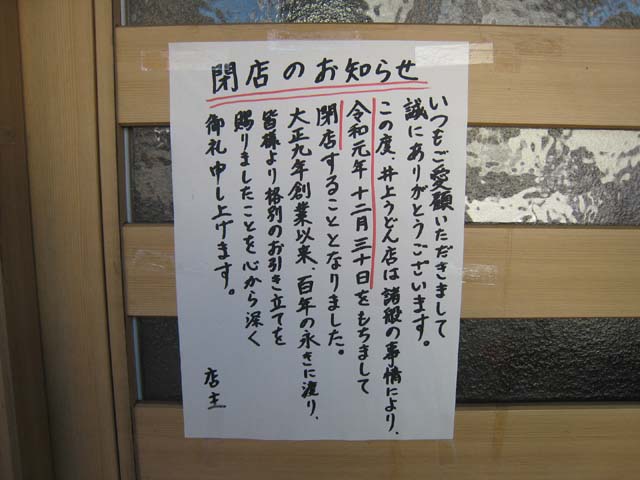 閉店のお知らせ
いつもご愛顧いただきまして
誠にありがとうございます。
この度、井上うどん店は諸般の事情により、
令和元年十二月三十日をもちまして
閉店することとなりました。
大正九年創業以来、百年の永きに渡り、
皆様より格別のお引き立てを
賜りましたことを心から深く
御礼申し上げます。
店主